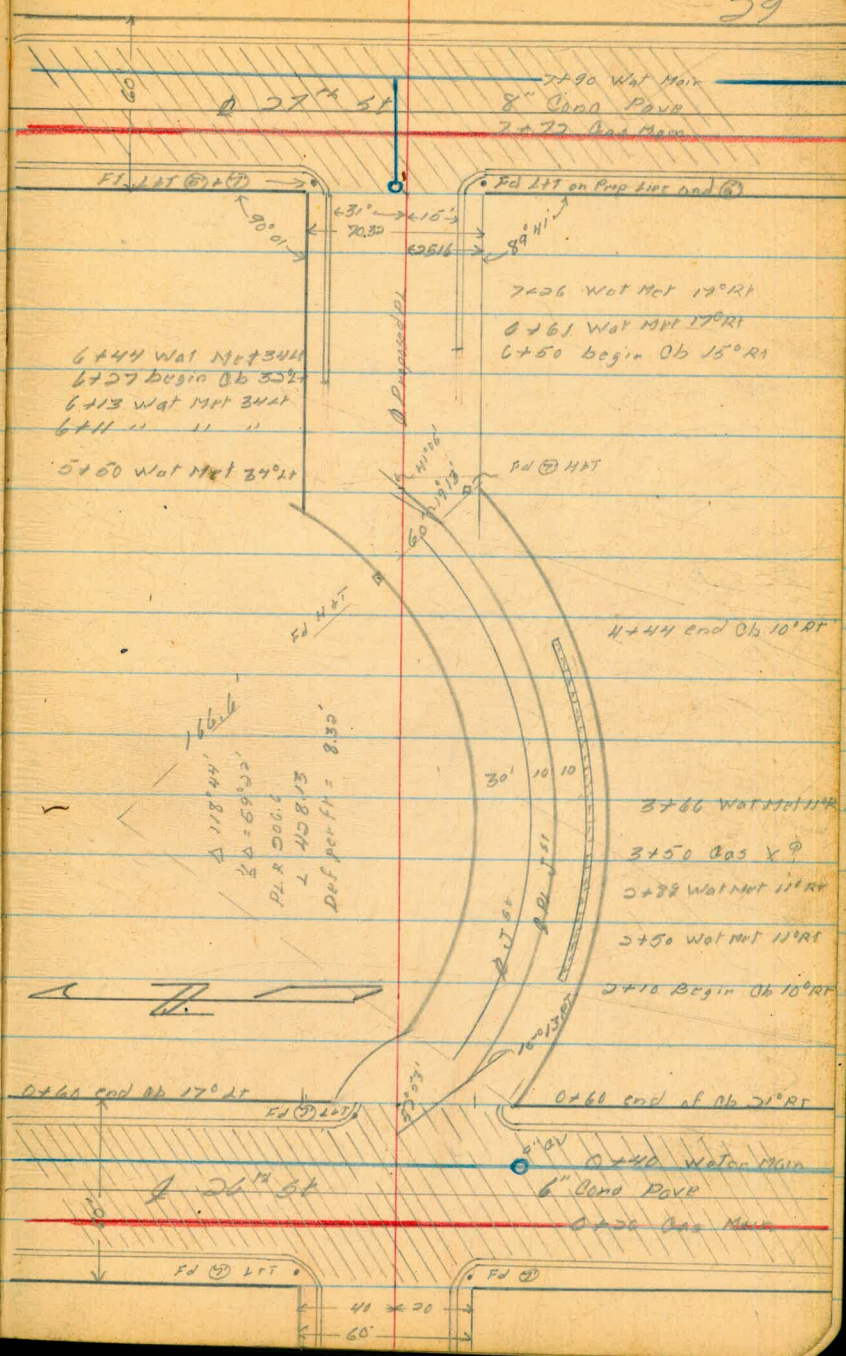 29
60'
7+90 Wat Main
₵ 27th St
8" Conc Pave
7+72 Gas Main
Fd L+T on Prop Lies and ⑥
31° 15'
70.32
25.16
90°01'
89°41'
7+26 Wat Met 17° Rt
6+61 Wat Met 17° Rt
6+50 begin Cb 15° Rt
₵ Proposed PL
6+44 Wat Met 34 Lt
6+27 begin Cb 32 Lt
6+13 Wat Met 34 Lt
6+11 " " "
5+50 Wat Met 34° Lt
41°06'
19.13'
60
Fd ⑦ H+T
Fd H+T
4+44 end Cb 10° Rt
166.6'
Δ 118°44'
½Δ = 59°22'
PL R 206.6
L 428.13
Def per ft = 8.32'
30' 10 10
3+66 Wat Met 11° R
3+50 Gas X ?
2+88 Wat Met 11° Rt
2+50 Wat Met 11° Rt
2+10 Begin Cb 10° Rt
₵ J St
₵ PL J St
0+60 end Cb 17° Lt
Fd ⑦ L+T
0+60 end of Cb 21° Rt
0+40 Water Main
₵ 26th St
6" Conc Pave
0+20 Gas Main
60'
Fd ⑦ L+T
Fd ⑦
40 20
60'